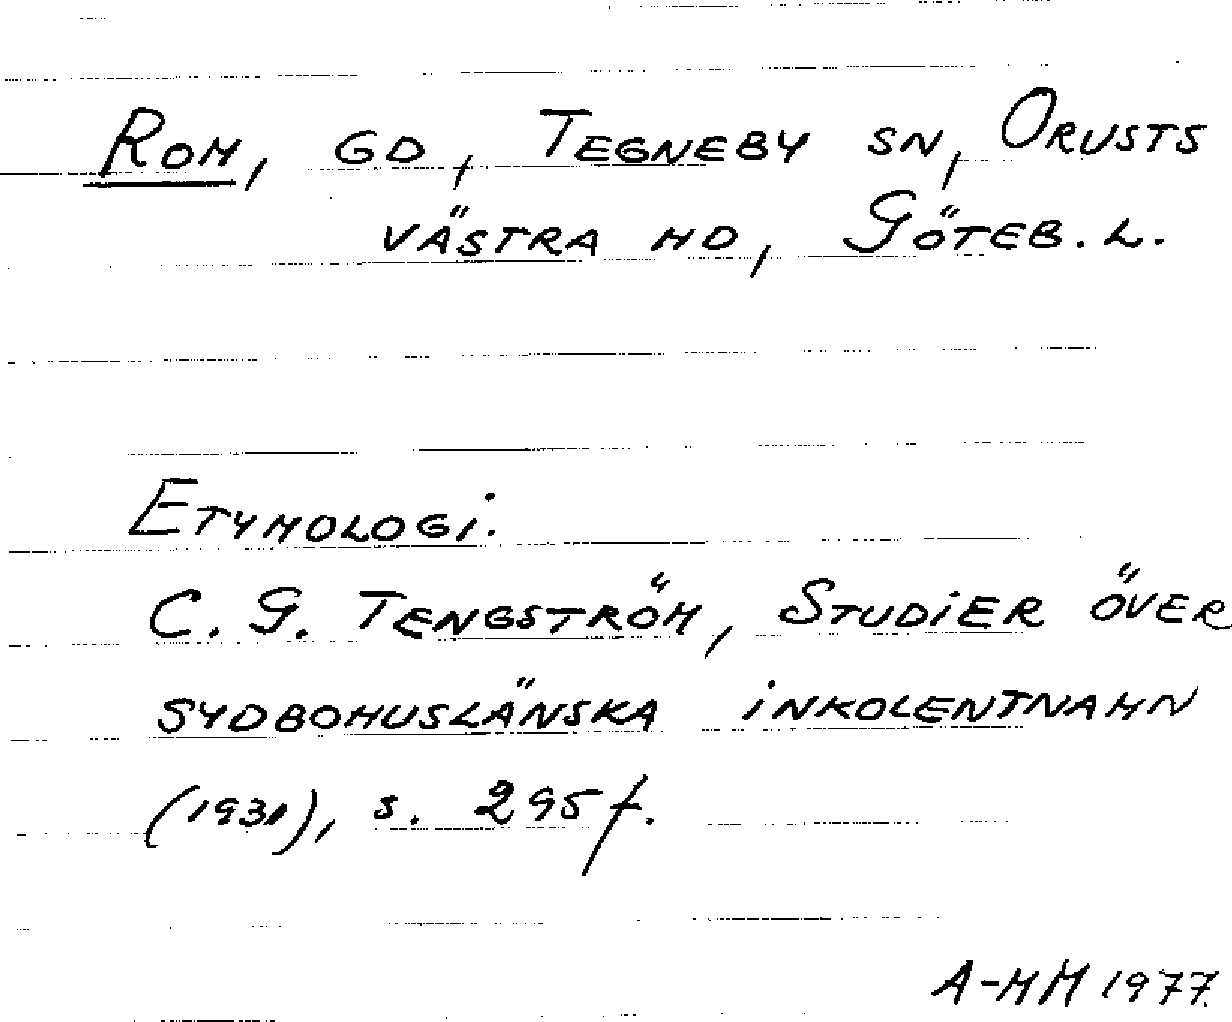 Rom, gd, Tegneby sn, Orusts
västra hd, Göteb. l.
Etymologi:
C. G. Tengström, Studier över
sydbohuslänska inkolentnamn
(1931), s. 295 f.
A-MM 1977.